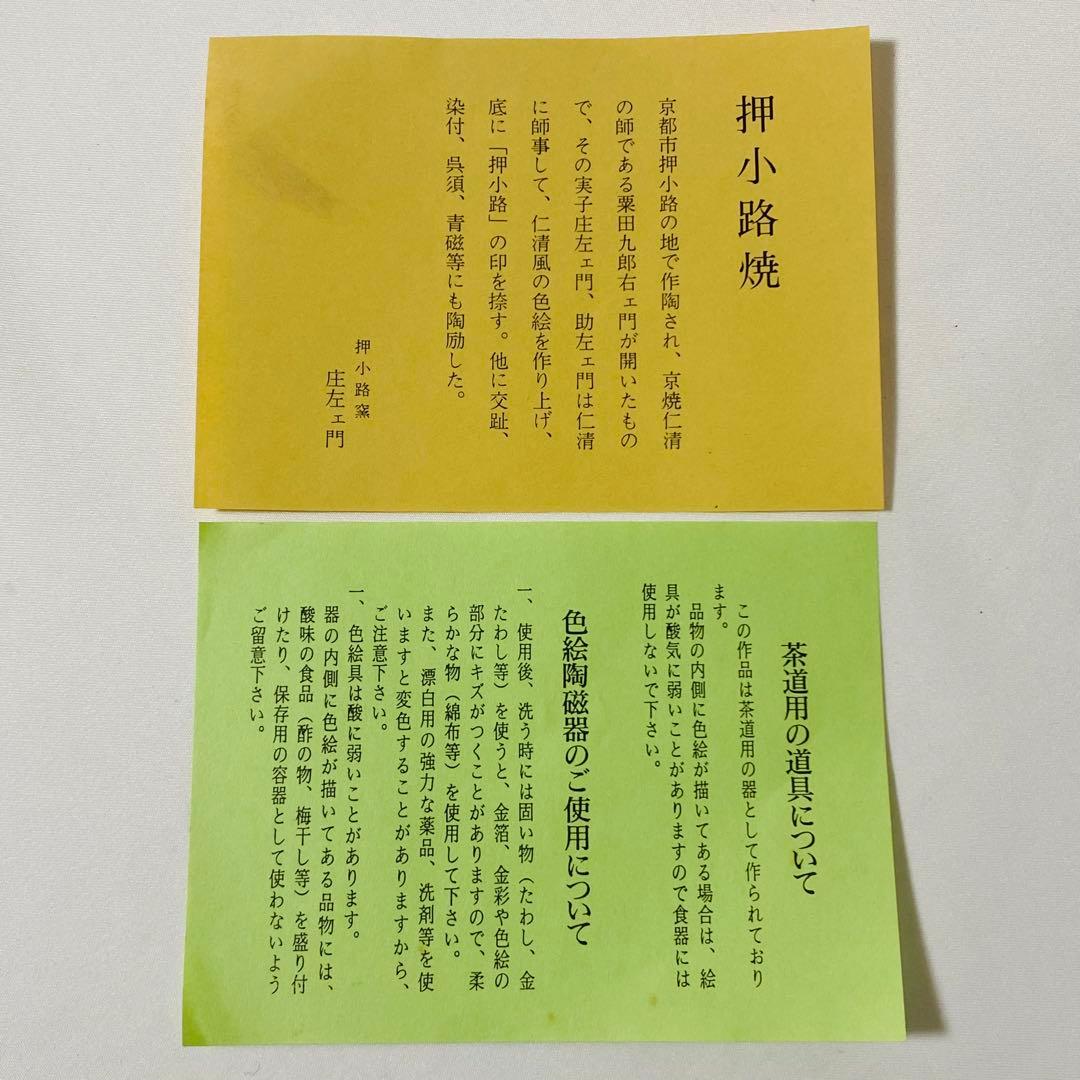 押小路焼
京都市押小路の地で作陶され、京焼仁清
の師である粟田九郎右ェ門が開いたもの
で、その実子庄左ェ門、助左ェ門は仁清
に師事して、仁清風の色絵を作り上げ、
底に「押小路」の印を捺す。他に交趾、
染付、呉須、青磁等にも陶励した。
押小路窯
庄左ェ門
茶道用の道具について
この作品は茶道用の器として作られており
ます。
品物の内側に色絵が描いてある場合は、絵
具が酸気に弱いことがありますので食器には
使用しないで下さい。
色絵陶磁器のご使用について
一、使用後、洗う時には固い物（たわし、金
たわし等）を使うと、金箔、金彩や色絵の
部分にキズがつくことがありますので、柔
らかな物（綿布等）を使用して下さい。
また、漂白用の強力な薬品、洗剤等を使
いますと変色することがありますから、
ご注意下さい。
一、色絵具は酸に弱いことがあります。
器の内側に色絵が描いてある品物には、
酸味の食品（酢の物、梅干し等）を盛り付
けたり、保存用の容器として使わないよう
ご留意下さい。